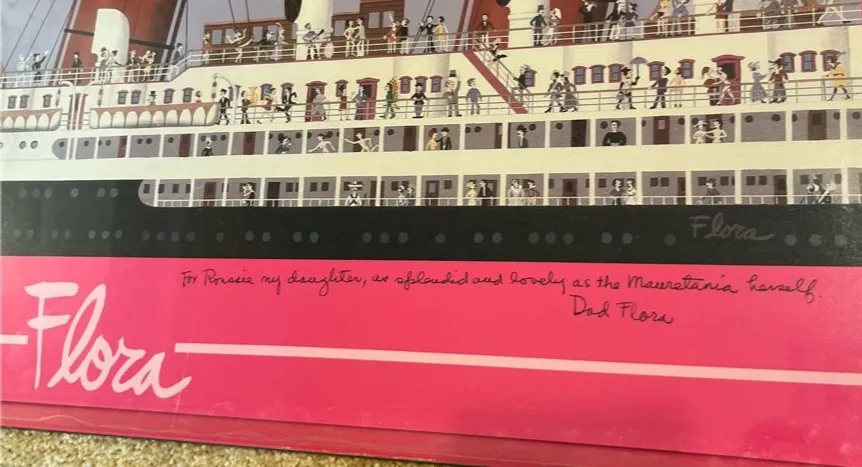 Flora
For Roussie my daughter, as splendid and lovely as the Mauretania herself.
Dad Flora
Flora